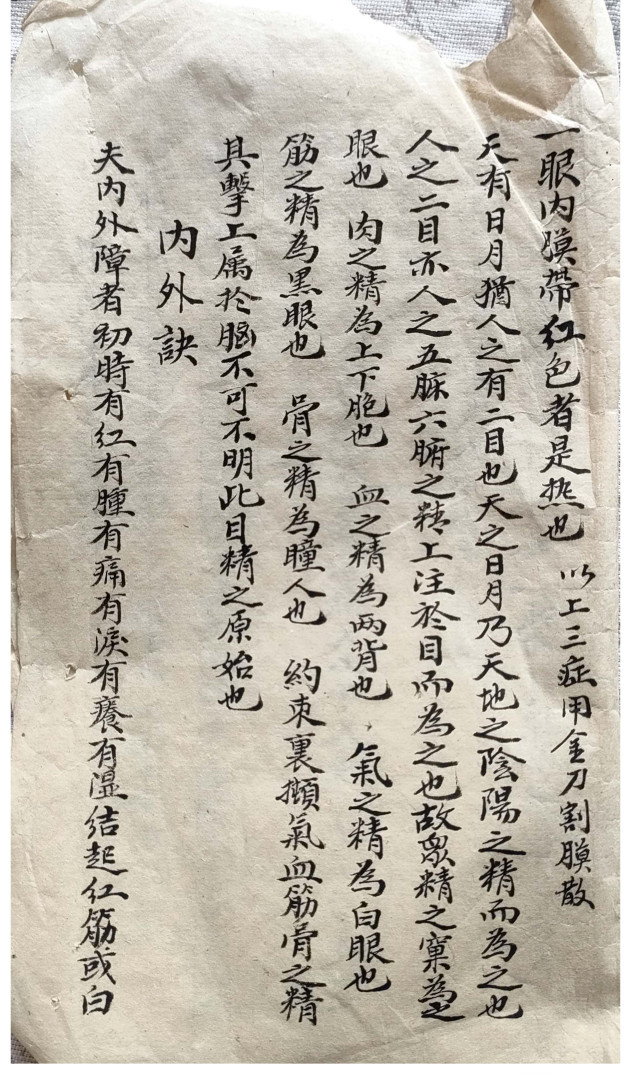 一眼内膜帶紅色者是热也 以上三症用金刀割膜散
天有日月猶人之有二目也天之日月乃天地之陰陽之精而為之也
人之二目亦人之五脏六腑之精上注於目而為之也故眾精之窠為之
眼也 肉之精為上下胞也 血之精為两背也 氣之精為白眼也
筋之精為黑眼也 骨之精為瞳人也 約束裏擷氣血筋骨之精
具擊上属於腦不可不明此目精之原始也
内外訣
夫内外障者初時有红有腫有痛有淚有癢有湿结起红筋或白